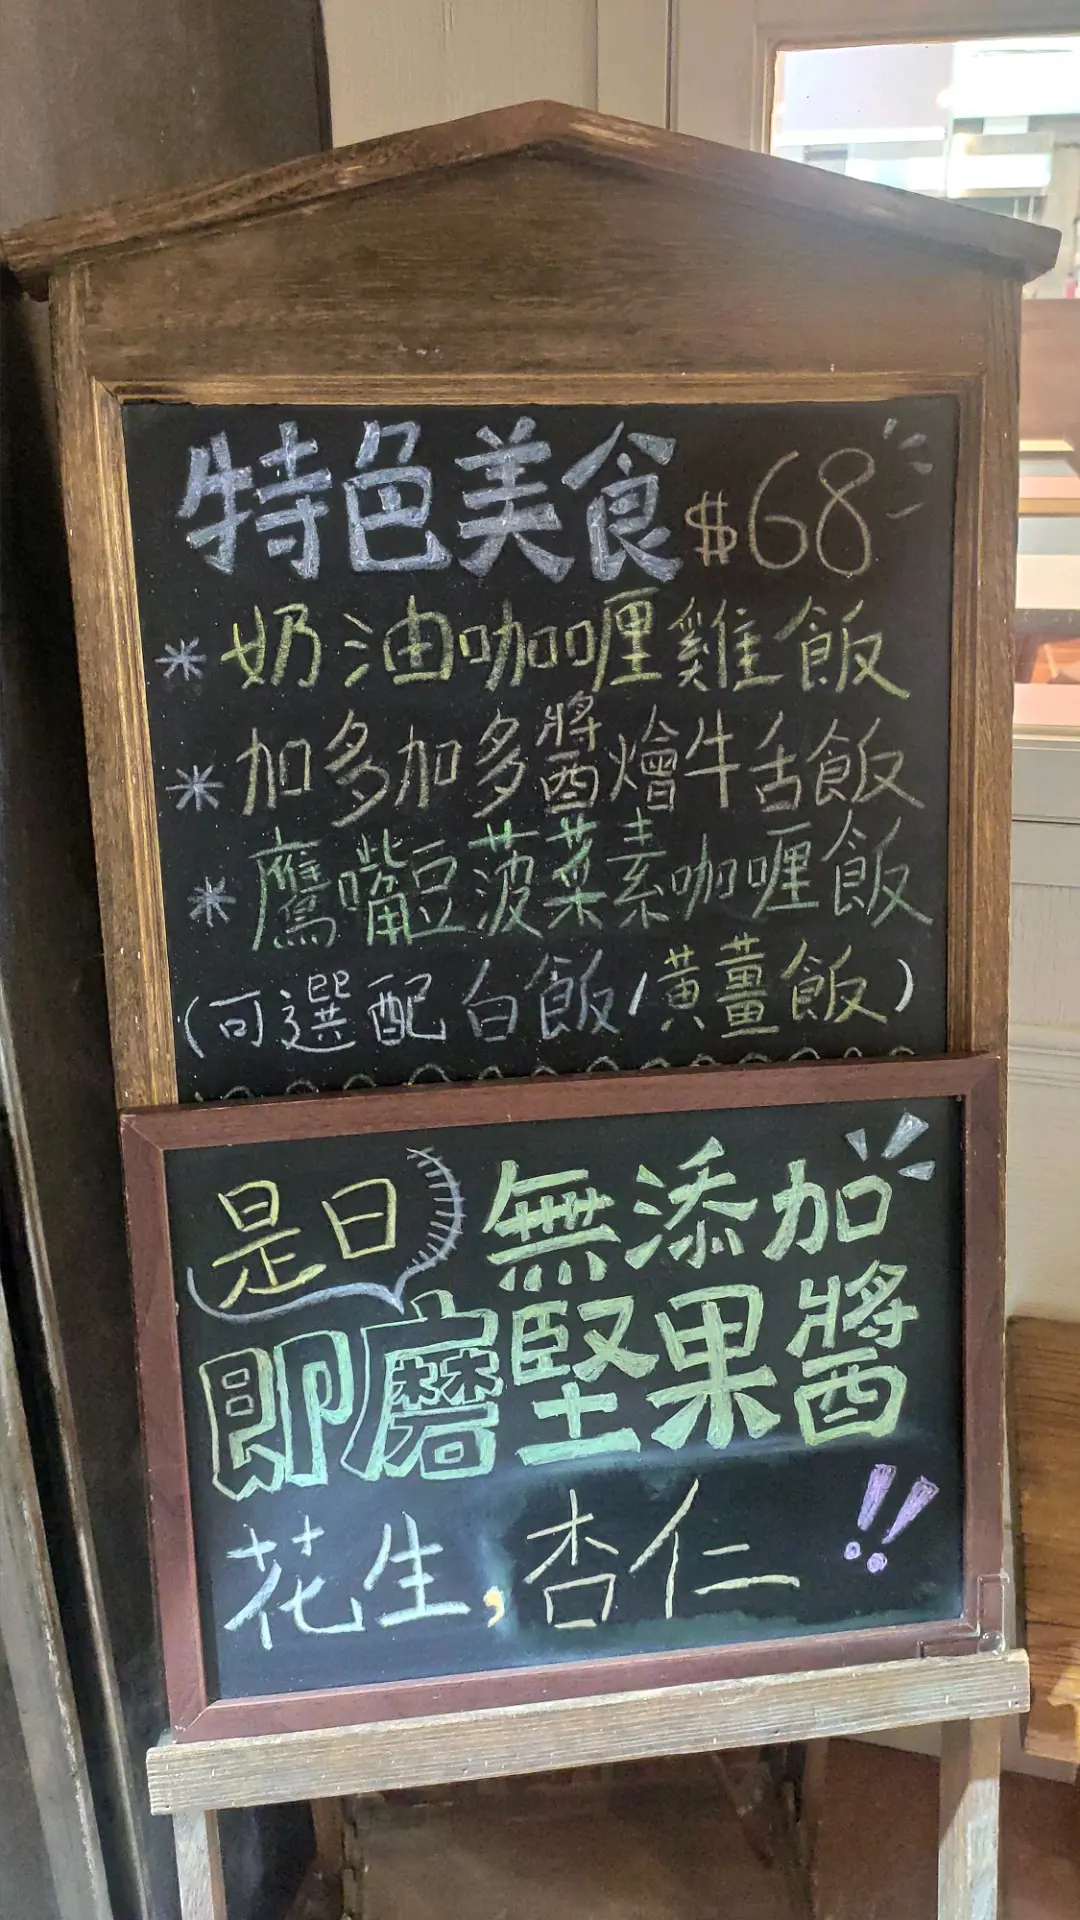 特色美食 $68
* 奶油咖喱雞飯
* 加多加多醬燴牛舌飯
* 鷹嘴豆菠菜素咖喱飯
(可選配白飯/黃薑飯)
是日 無添加
即磨堅果醬
花生,杏仁!!